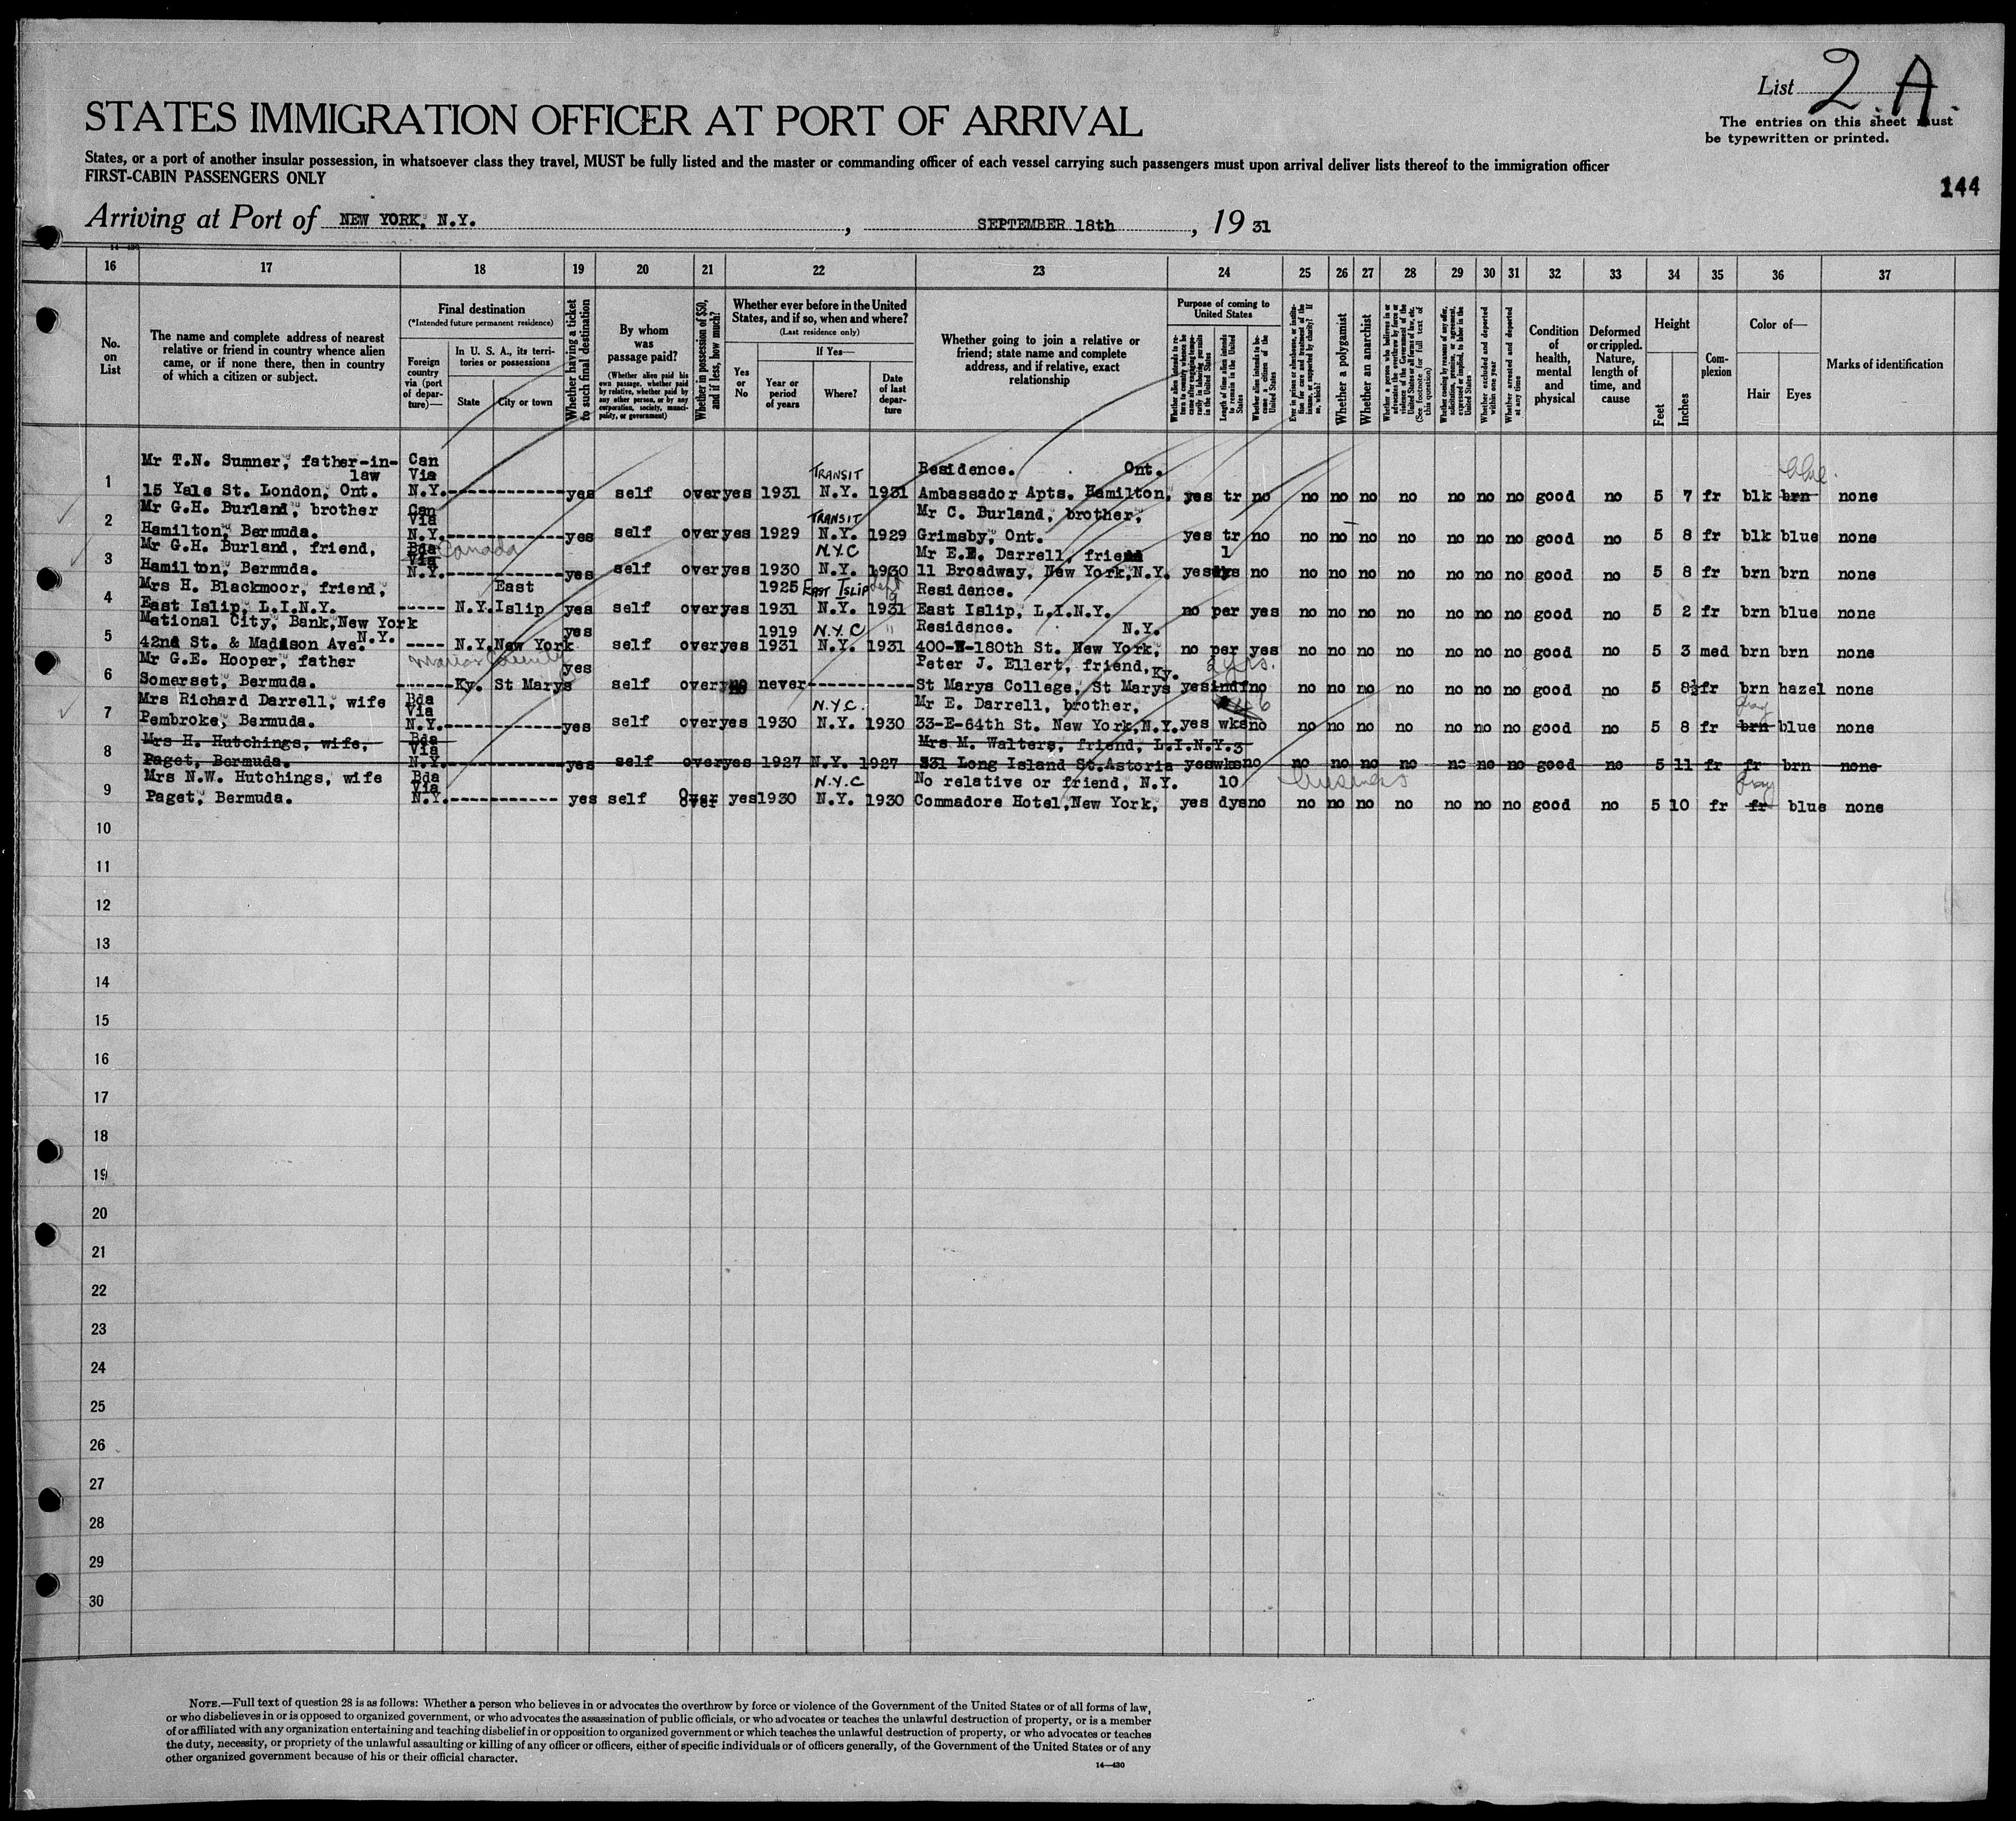 List 2.A.
STATES IMMIGRATION OFFICER AT PORT OF ARRIVAL
The entries on this sheet must
be typewritten or printed.
States, or a port of another insular possession, in whatsoever class they travel, MUST be fully listed and the master or commanding officer of each vessel carrying such passengers must upon arrival deliver lists thereof to the immigration officer
FIRST-CABIN PASSENGERS ONLY
144
Arriving at Port of NEW YORK, N.Y. , SEPTEMBER 18th , 19 31
16 17 18 19 20 21 22 23 24 25 26 27 28 29 30 31 32 33 34 35 36 37
No. on List
The name and complete address of nearest relative or friend in country whence alien came, or if none there, then in country of which a citizen or subject.
Final destination
(*Intended future permanent residence)
Foreign country via (port of departure)—
In U. S. A., its territories or possessions
State
City or town
Whether having a ticket to such final destination
By whom was passage paid?
(Whether alien paid his own passage, whether paid by relative, whether paid by any other person, or by any corporation, society, municipality, or government)
Whether in possession of $50, and if less, how much?
Whether ever before in the United States, and if so, when and where?
(Last residence only)
Yes or No
If Yes—
Year or period of years
Where?
Date of last departure
Whether going to join a relative or friend; state name and complete address, and if relative, exact relationship
Purpose of coming to United States
Length of time alien intends to remain in the United States
Whether alien intends to become a citizen of the United States
Whether a polygamist
Whether an anarchist
Whether excluded and deported within one year
Whether arrested and deported at any time
Condition of health, mental and physical
Deformed or crippled. Nature, length of time, and cause
Height
Feet
Inches
Complexion
Color of—
Hair
Eyes
Marks of identification
Mr T.N. Sumner, father-in- Can
law Via TRANSIT Residence. Ont. blue.
1 15 Yale St. London, Ont. N.Y.------------yes self over yes 1931 N.Y. 1931 Ambassador Apts. Hamilton, yes tr no no no no no no no no good no 5 7 fr blk brn none
Mr G.H. Burland, brother Can Via TRANSIT Mr C. Burland, brother,
2 Hamilton, Bermuda. N.Y.------------yes self over yes 1929 N.Y. 1929 Grimsby, Ont. yes tr no no no no no no no no good no 5 8 fr blk blue none
Mr G.H. Burland, friend, Bda Canada Via N.Y.C Mr E.E. Darrell, friend 1
3 Hamilton, Bermuda. N.Y.------------yes self over yes 1930 N.Y. 1930 11 Broadway, New York, N.Y. yes dys no no no no no no no no good no 5 8 fr brn brn none
Mrs H. Blackmoor, friend, East 1925 EAST ISLIP Residence.
4 East Islip, L.I.N.Y. ----- N.Y. Islip yes self over yes 1931 N.Y. 1931 East Islip, L.I.N.Y. no per yes no no no no no no no good no 5 2 fr brn blue none
National City, Bank, New York yes 1919 N.Y.C " Residence. N.Y.
5 42nd St. & Madison Ave. N.Y. ---- N.Y. New York self over yes 1931 N.Y. 1931 400-W-180th St. New York, no per yes no no no no no no no good no 5 3 med brn brn none
Mr G.E. Hooper, father Marion County yes Peter J. Ellert, friend, Ky. 2 yrs.
6 Somerset, Bermuda. ------Ky. St Marys self over no never----------- St Marys College, St Marys yes indf no no no no no no no no good no 5 8½ fr brn hazel none
Mrs Richard Darrell, wife Bda Via N.Y.C. Mr E. Darrell, brother, 6 gray
7 Pembroke, Bermuda. N.Y.------------yes self over yes 1930 N.Y. 1930 33-E-64th St. New York, N.Y. yes wks no no no no no no no no good no 5 8 fr brn blue none
Mrs H. Hutchings, wife, Bda Via Mrs M. Walters, friend, L.I.N.Y. 3
8 Paget, Bermuda. N.Y.------------yes self over yes 1927 N.Y. 1927 531 Long Island St. Astoria yes wks no no no no no no no no good no 5 11 fr fr brn none
Mrs N.W. Hutchings, wife Bda Via N.Y.C No relative or friend, N.Y. 10 business gray
9 Paget, Bermuda. N.Y.------------ yes self Over yes 1930 N.Y. 1930 Commadore Hotel, New York, yes dys no no no no no no no no good no 5 10 fr fr blue none
10
11
12
13
14
15
16
17
18
19
20
21
22
23
24
25
26
27
28
29
30
NOTE.—Full text of question 28 is as follows: Whether a person who believes in or advocates the overthrow by force or violence of the Government of the United States or of all forms of law,
or who disbelieves in or is opposed to organized government, or who advocates the assassination of public officials, or who advocates or teaches the unlawful destruction of property, or is a member
of or affiliated with any organization entertaining and teaching disbelief in or opposition to organized government or which teaches the unlawful destruction of property, or who advocates or teaches
the duty, necessity, or propriety of the unlawful assaulting or killing of any officer or officers, either of specific individuals or of officers generally, of the Government of the United States or of any
other organized government because of his or their official character.
14—430